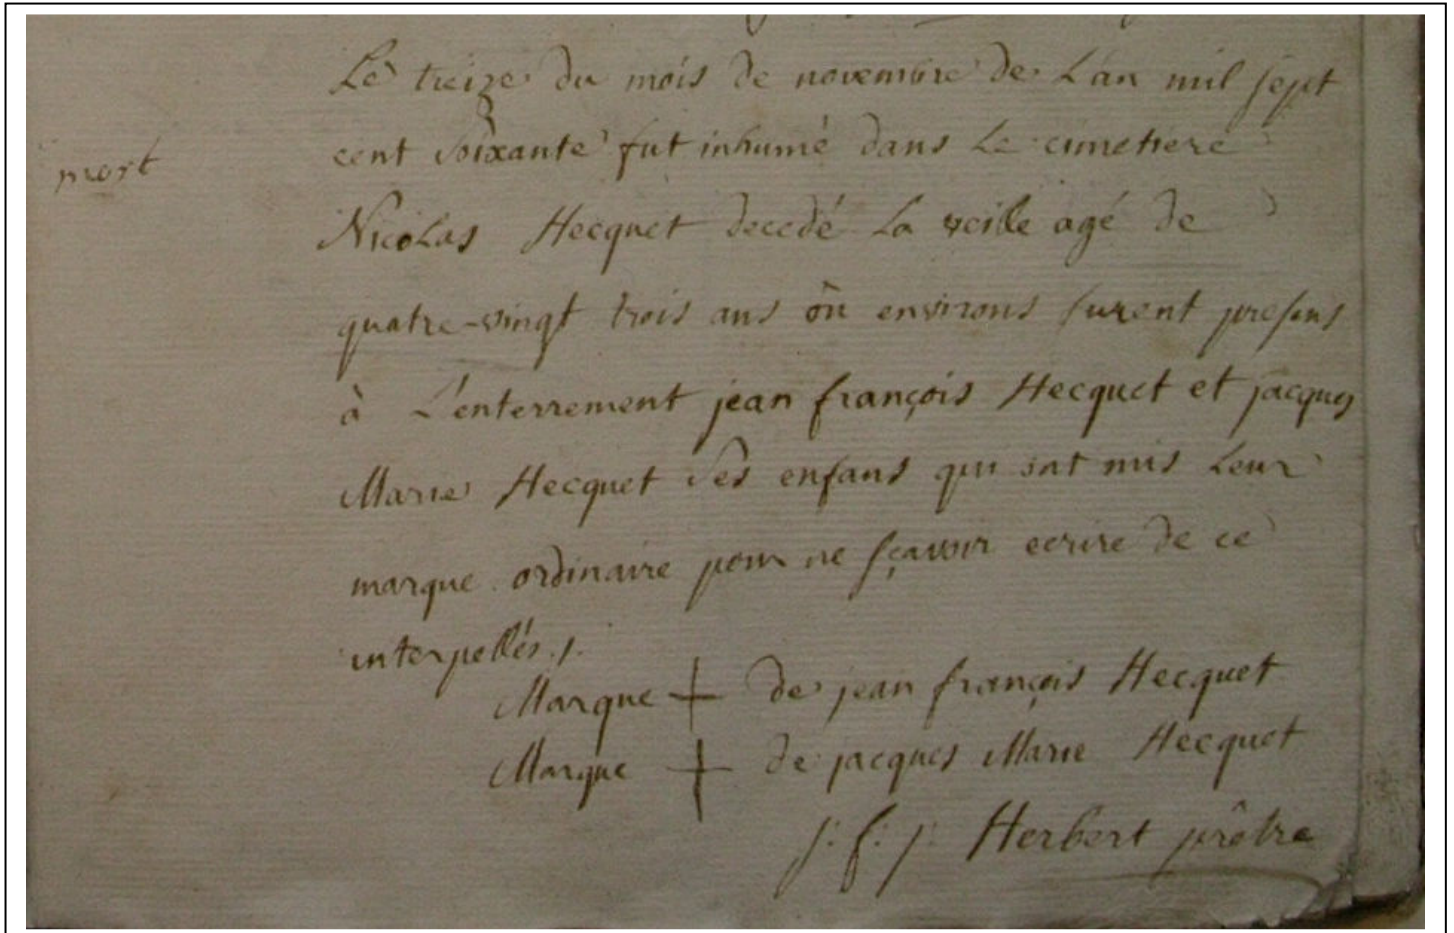 Le treize du mois de novembre de L'an mil sept
mort
cent soixante fut inhumé dans Le cimetiere
Nicolas Hecquet decedé La veille agé de
quatre-vingt trois ans ou environs furent presens
à L'enterrement jean françois Hecquet et jacques
Marie Hecquet ses enfans qui ont mis Leur
marque ordinaire pour ne sçavoir ecrire de ce
interpellés ./.
Marque + de jean françois Hecquet
Marque + de jacques Marie Hecquet
j: f: j: Herbert prêtre